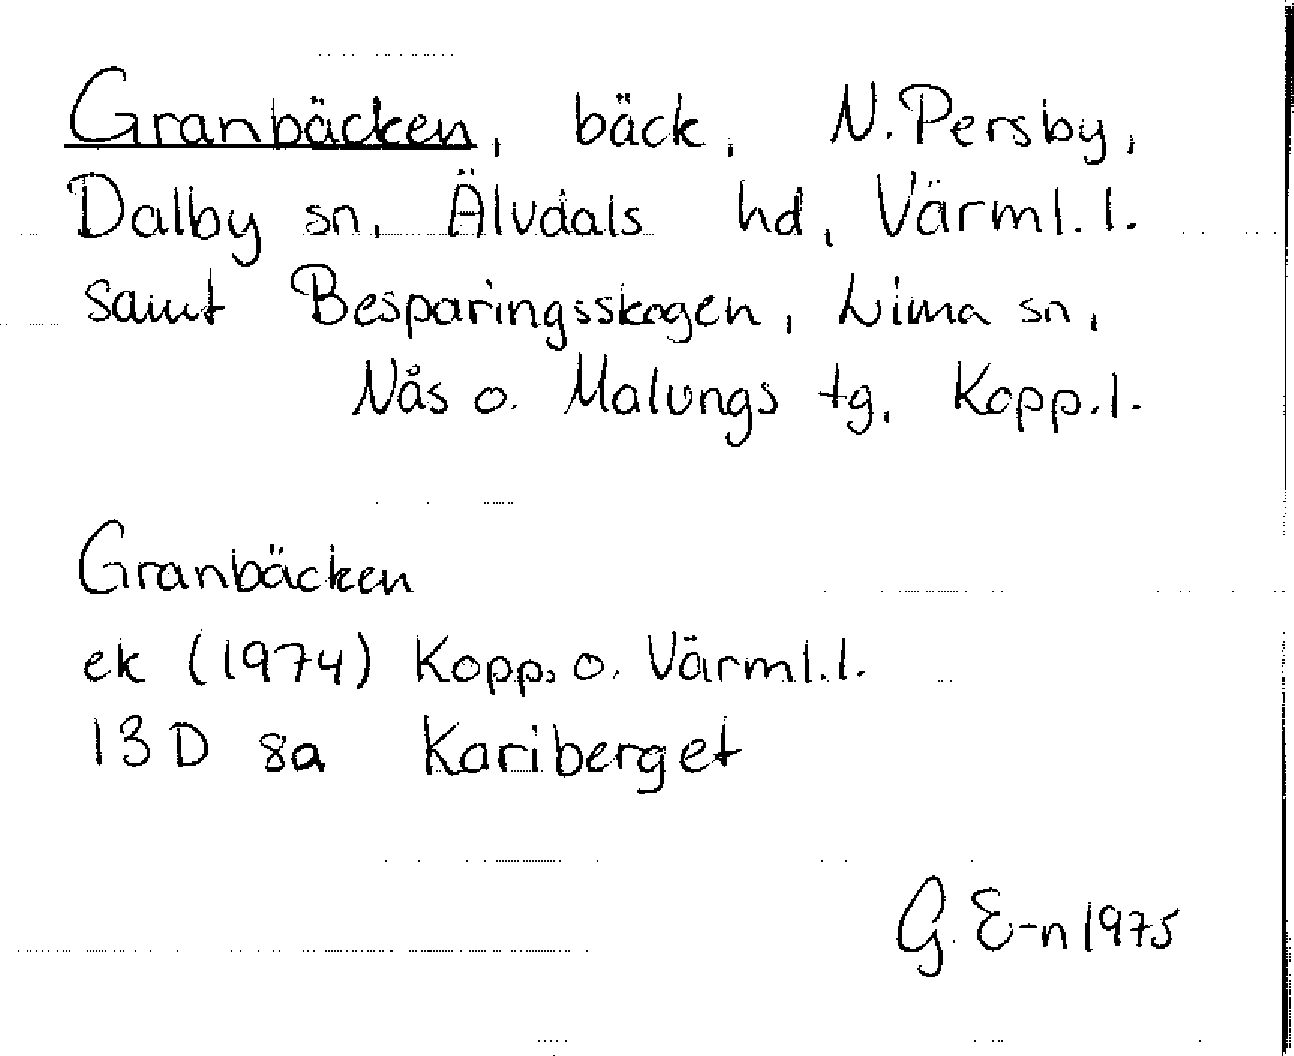 Granbäcken, bäck, N. Persby,
Dalby sn, Älvdals hd, Värml. l.
samt Besparingsskogen, Lima sn,
Nås o. Malungs tg, Kopp. l.
Granbäcken
ek (1974) Kopp. o. Värml. l.
13 D 8a Kariberget
G. E-n 1975